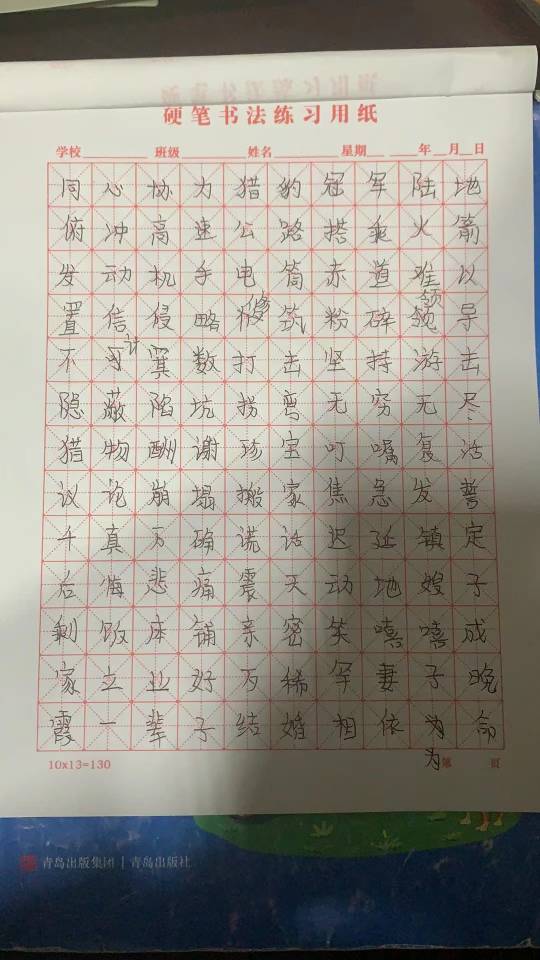 硬笔书法练习用纸
学校 班级 姓名 星期 年 月 日
同心协力猎豹冠军陆地
俯冲高速公路搭乘火箭
发动机手电筒赤道难以
置信侵略修筑粉碎领导
领
不计其数打击坚持游击
隐蔽陷坑拐弯无穷无尽
猎物酬谢珍宝叮嘱复活
议论崩塌搬家焦急发誓
千真万确谎话迟延镇定
后悔悲痛震天动地嫂子
剩饭床铺亲密笑嘻嘻成
家立业好歹稀罕妻子晚
霞一辈子结婚相依为命
为
10x13=130 第 页
青岛出版集团｜青岛出版社